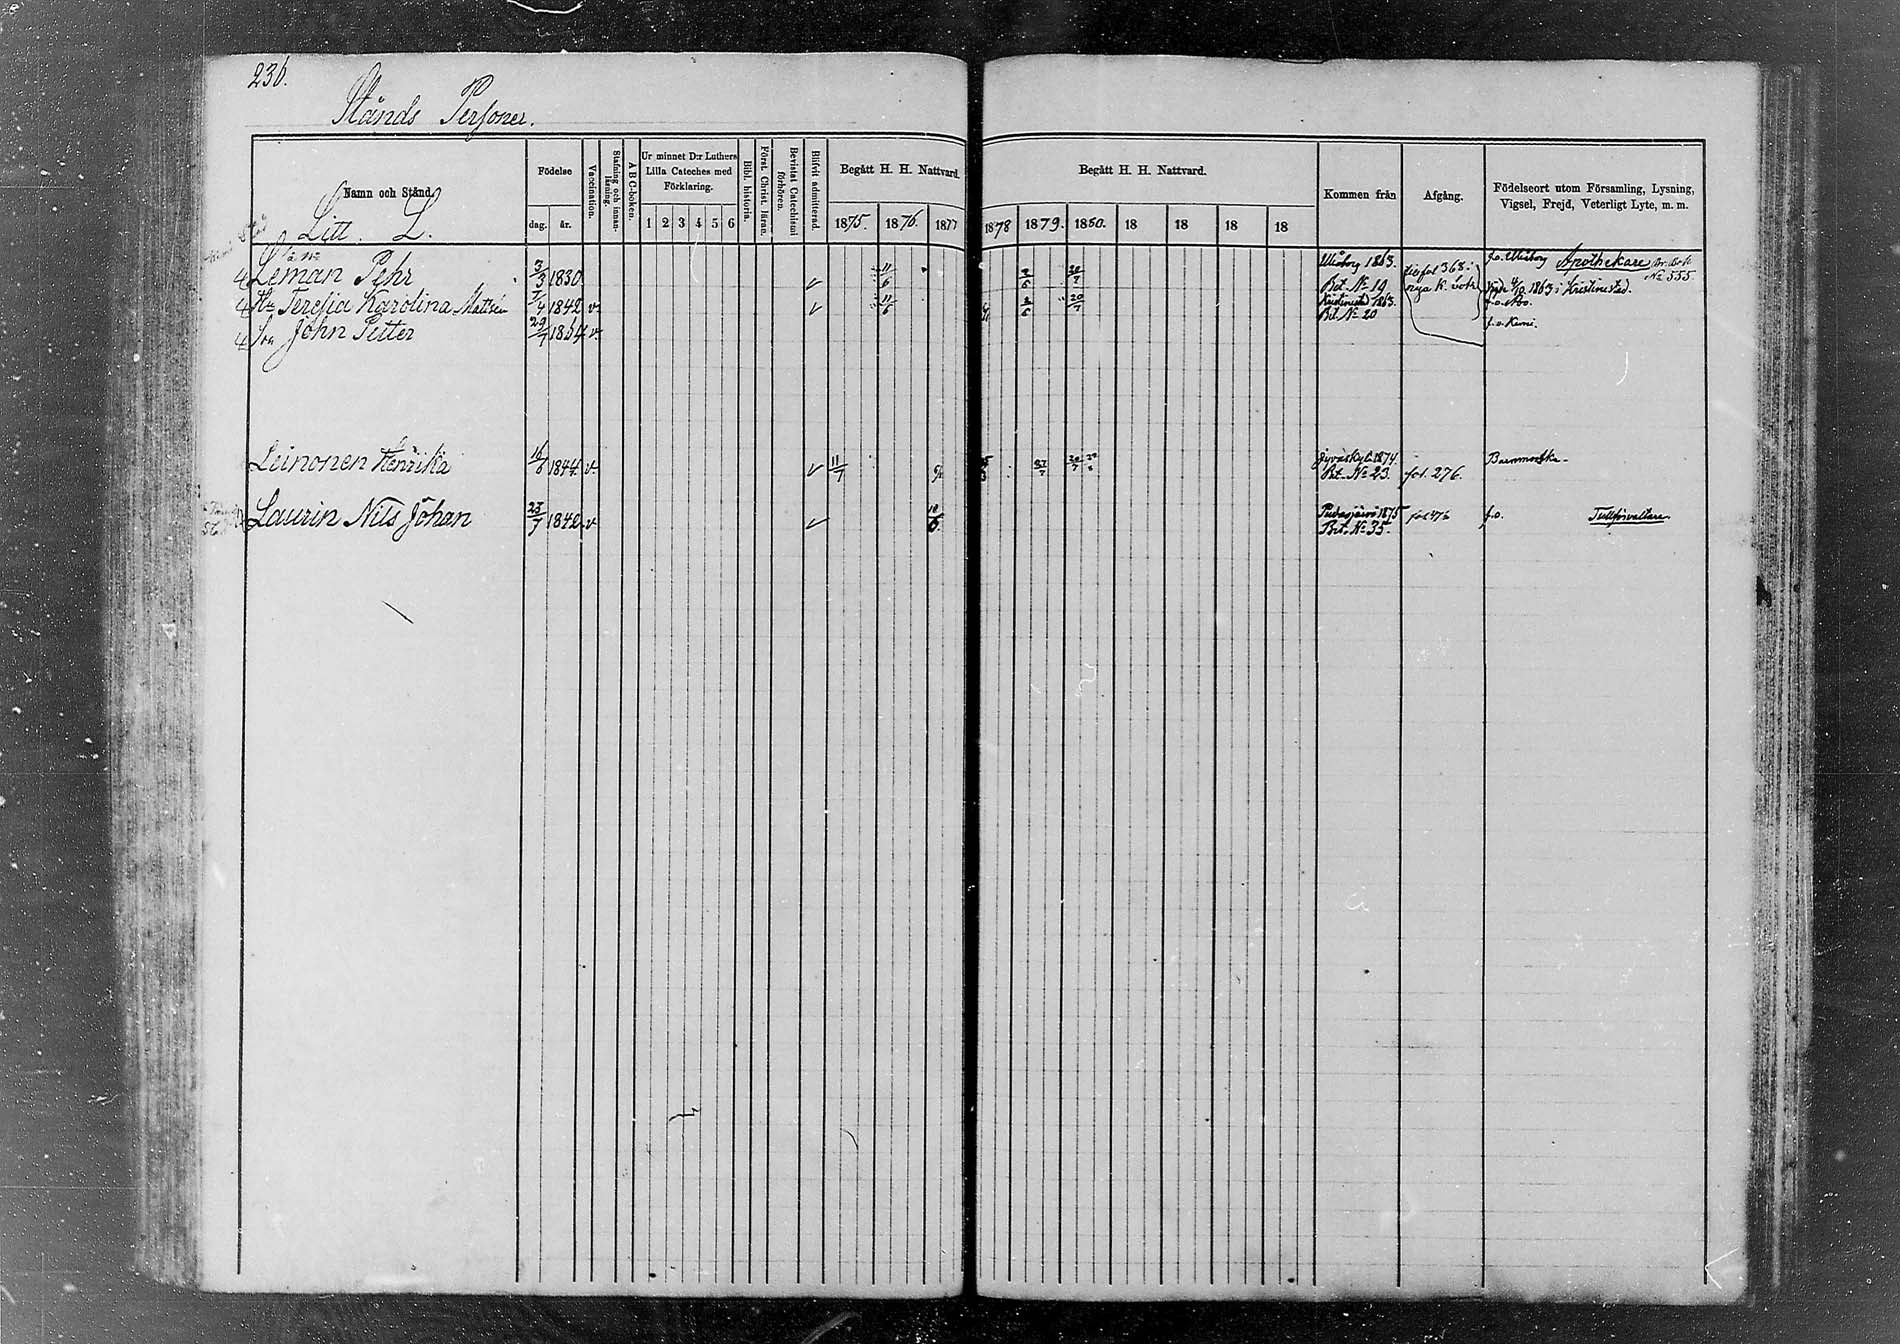 236.
Stånds Personer.
Namn och Stånd.
Litt. L.
Födelse
dag. år.
Vaccination.
Stafning och innan-
läsning.
A B C-boken.
Ur minnet D:r Luthers
Lilla Cateches med
Förklaring.
1 2 3 4 5 6
Bibl. historia.
Först. Christ. läran.
Bevistat Catechismi
förhören.
Blifvit admitterad.
Begått H. H. Nattvard.
1875. 1876. 1877
Begått H. H. Nattvard.
1878 1879. 1880. 18 18 18 18
Kommen från
Afgång.
Födelseort utom Församling, Lysning,
Vigsel, Frejd, Veterligt Lyte, m. m.
Leman Pehr 3/3 1830 11/6 Uleåborg 1863. Bet. No 19 f.o. Uleåborg Apothekare No 555
Hu Teresia Karolina 1842 v. 11/6 20/7 Kristinestad 1863. Bet. No 20 1863 i Kristinestad.
Son John Petter 29/7 v. f.o. Kemi.
fol 363 i
nya K. bok
Leinonen Henrika 16/6 1844 v. 11/7 27/7 20/7 Jyväskylä 1874. Bet. No 23. fol. 276. Barnmorska
Laurin Nils Johan 23/7 1842 v. 10/6 Pudasjärvi 1875 Bet. No 35. f.o. Tullförvaltare